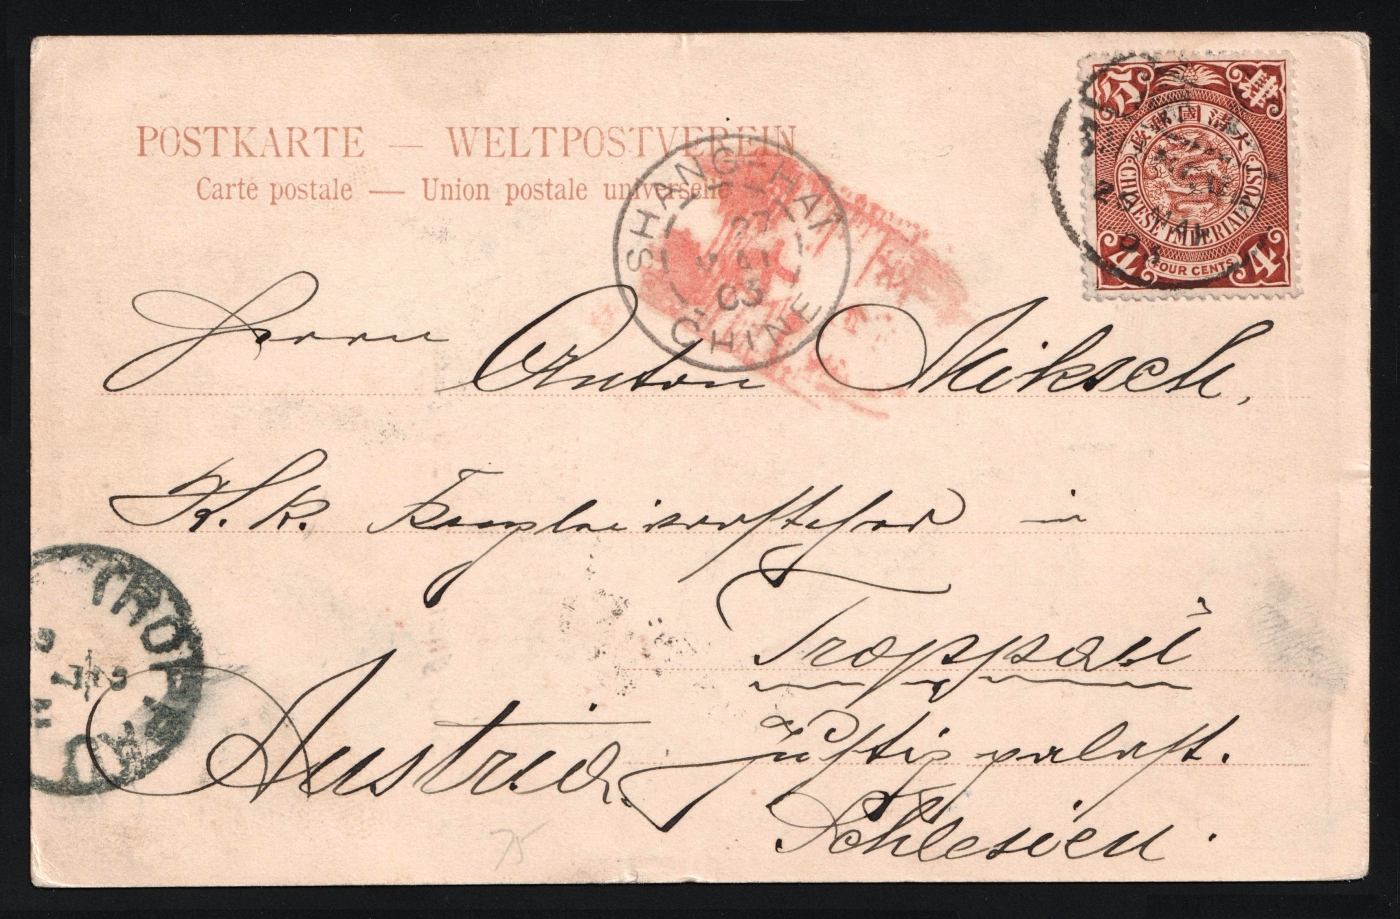 POSTKARTE — WELTPOSTVEREIN
Carte postale — Union postale universelle
SHANG-HAI
27
MAI
03
CHINE
大清國郵政
CHINESE IMPERIAL POST
FOUR CENTS
4 4
Herrn Anton Miksch,
K. k. Kanzleivorsteher in
Troppau
Justizpalast.
Austria.
Schlesien.
TROPPAU
75